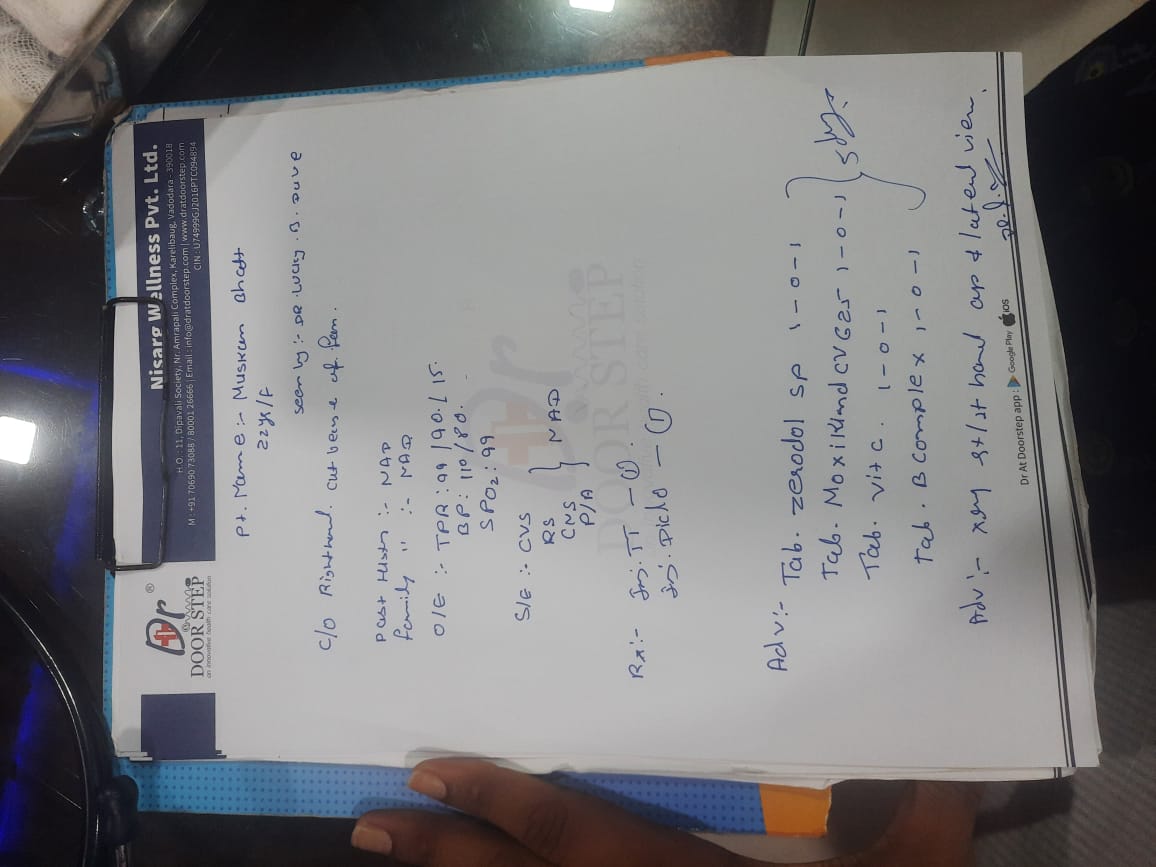 Dr ®
DOOR STEP
an innovative health care solution
Nisarg Wellness Pvt. Ltd.
H.O. : 11, Dipavali Society, Nr. Amrapali Complex, Karelibaug, Vadodara - 390018
M : +91 70690 73088 / 80001 26666 | Email : info@dratdoorstep.com | www.dratdoorstep.com
CIN : U74999GJ2016PTC094894
Pt. Name :- Muskan Bhatt
22yr/F
seen by :- DR. Lucky. B. Dave
C/O Right hand. cut because of fan.
Past History :- NAD
family " :- NAD
O/E :- TPR : 99 / 90 / 15.
BP : 110/80.
SPO2 : 99
S/E :- CVS
RS
CNS
P/A
} NAD
Rx :- Inj. TT - ①.
Inj. Diclo - ①.
Adv :- Tab. zerodol SP 1-0-1
Tab. Moxikind CV 625 1-0-1 } 5 days.
Tab. vit C. 1-0-1
Tab. B complex 1-0-1
Adv :- xray hand ap & lateral view.
Dr At Doorstep app : Google Play iOS
Dr
DOOR STEP
an innovative health care solution